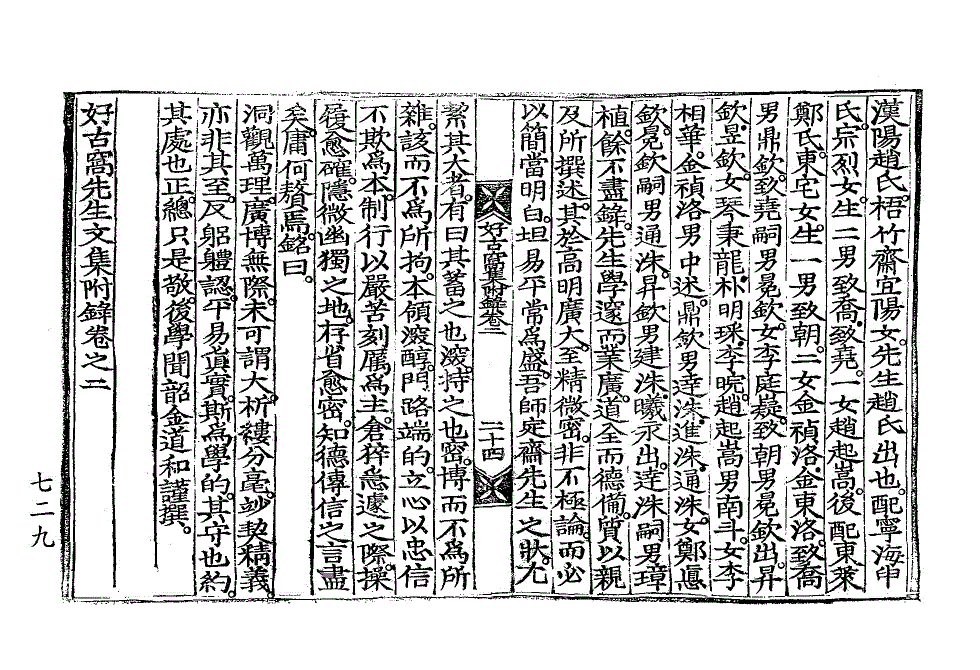 漢陽趙氏梧竹齋宜陽女先生趙氏出也配寧海申
氏宗烈女生二男致喬致堯一女趙起嵩後配東萊
鄭氏東宅女生一男致朝二女金禎洛金東洛致喬
男鼎欽致堯嗣男晃欽女李庭嶷致朝男晃欽出昇
欽昱欽女琴秉龍朴明珠李晥趙起嵩男南斗女李
相華金禎洛男中述鼎欽男達洙進洙通洙女鄭
欽晃欽嗣男通洙昇欽男建洙曦永出達洙嗣男璋
植餘不盡錄先生學邃而業廣道全而德備質以親
及所撰述其於高明廣大至精微密非不極論而必
以簡當明白坦易平常爲盛吾師定齋先生之狀尤
好古窩集附錄卷二 二十四
絜其大者有曰其蓄之也深持之也密博而不爲所
雜該而不爲所拘本領深醇門路端的立心以忠信
不欺爲本制行以嚴苦刻厲爲主倉猝急遽之際操
履愈確隱微幽獨之地存省愈密知德傳信之言盡
矣庸何贅焉銘曰
洞觀萬理廣博無際未可謂大析縷分毫妙契精義
亦非其至反躬軆認平易眞實斯爲學的其守也約
其處也正總只是敬後學聞韶金道和謹撰
好古窩先生文集附錄卷之二
七二九